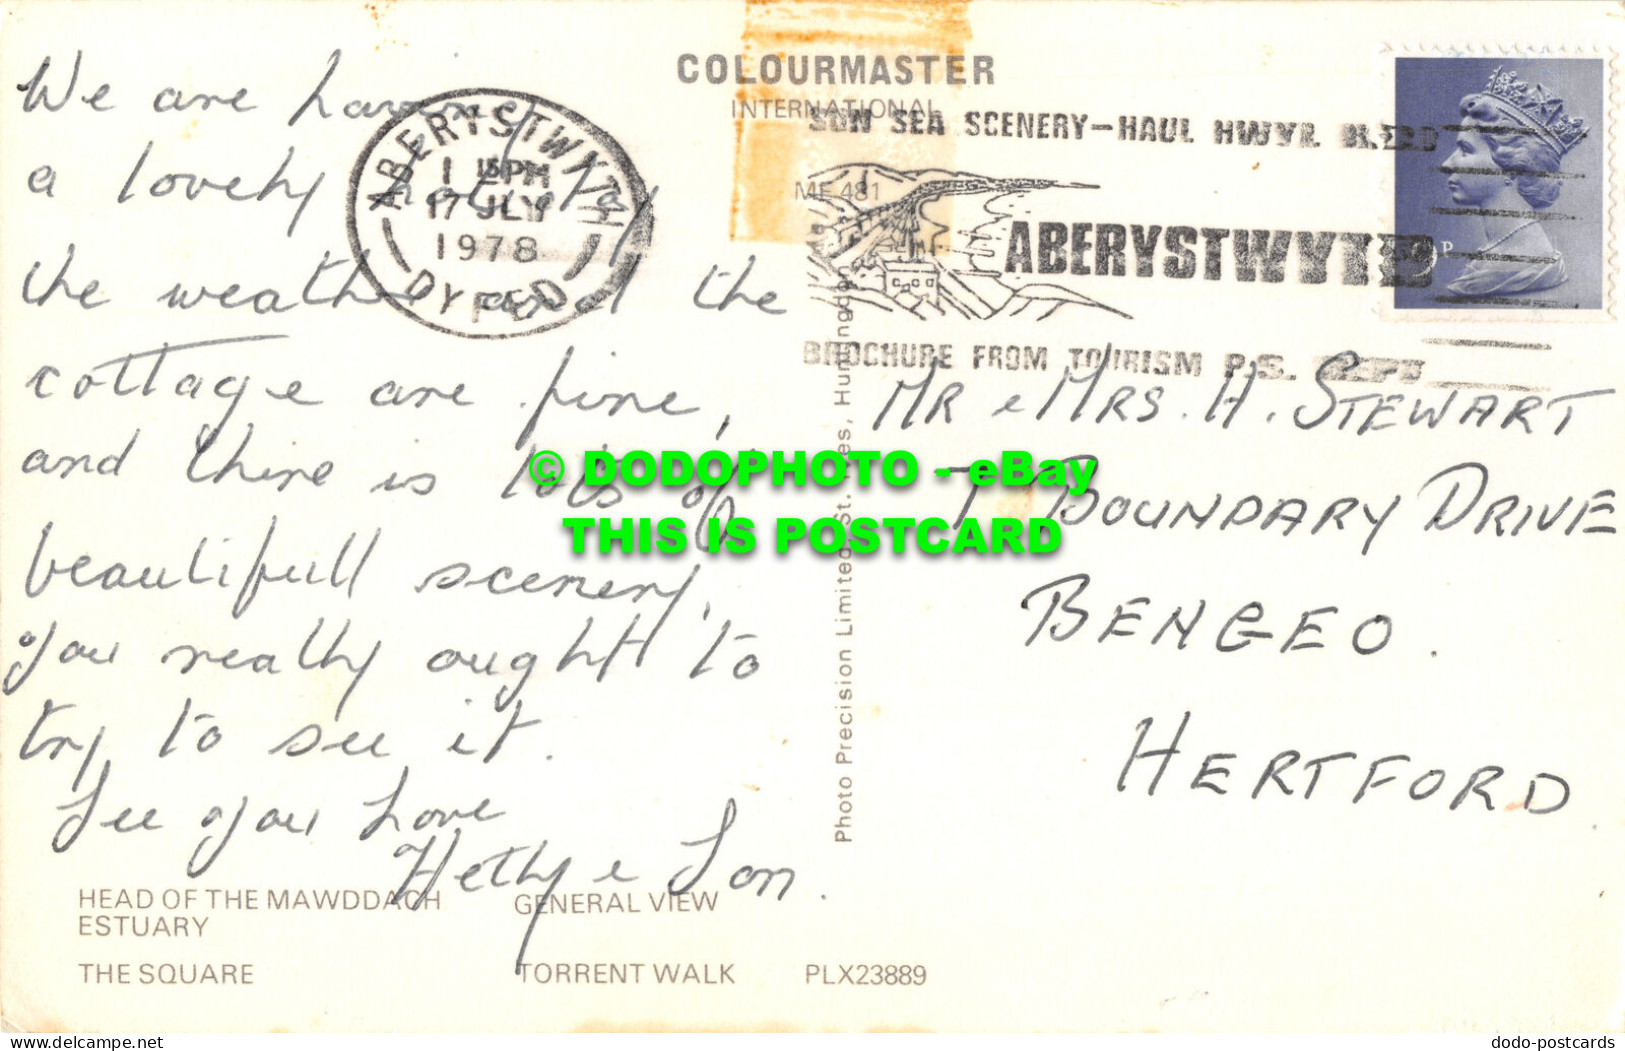 We are having
a lovely holiday
the weather and the
cottage are fine,
and thire is lots of
beautifull scenery,
you really ought to
try to see it.
See you Love
Hetty e Ion.
HEAD OF THE MAWDDACH
ESTUARY
GENERAL VIEW
THE SQUARE
TORRENT WALK
PLX23889
ABERYSTWYTH
1 15PM
17 JLY
1978
DYFED
COLOURMASTER
INTERNATIONAL
MF 481
SUN SEA SCENERY-HAUL HWYL
ABERYSTWYTH
BROCHURE FROM TOURISM P.S. DEPT
Photo Precision Limited, St. Ives, Huntingdon
MR e MRS. H. STEWART
7 BOUNDARY DRIVE
BENGEO.
HERTFORD
© DODOPHOTO - eBay
THIS IS POSTCARD
dodo-postcards